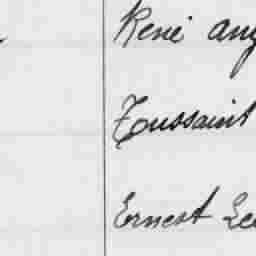 René Ang
Toussaint
Ernest Le